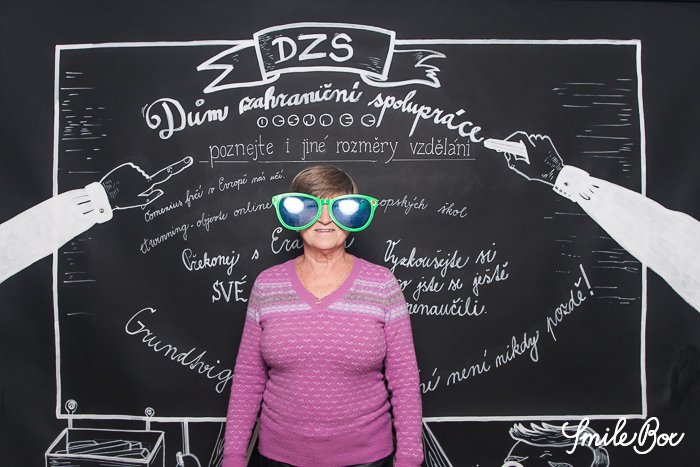 DZS
Dům zahraniční spolupráce
poznejte i jiné rozměry vzdělání
Comenius frčí v Evropě nás učí.
etwinning - objevte online opských škol
Era
Překonej s
SVÉ
Vyzkoušejte si
co jste se ještě
nenaučili.
Grundtvig
né není nikdy pozdě!
Smile Box